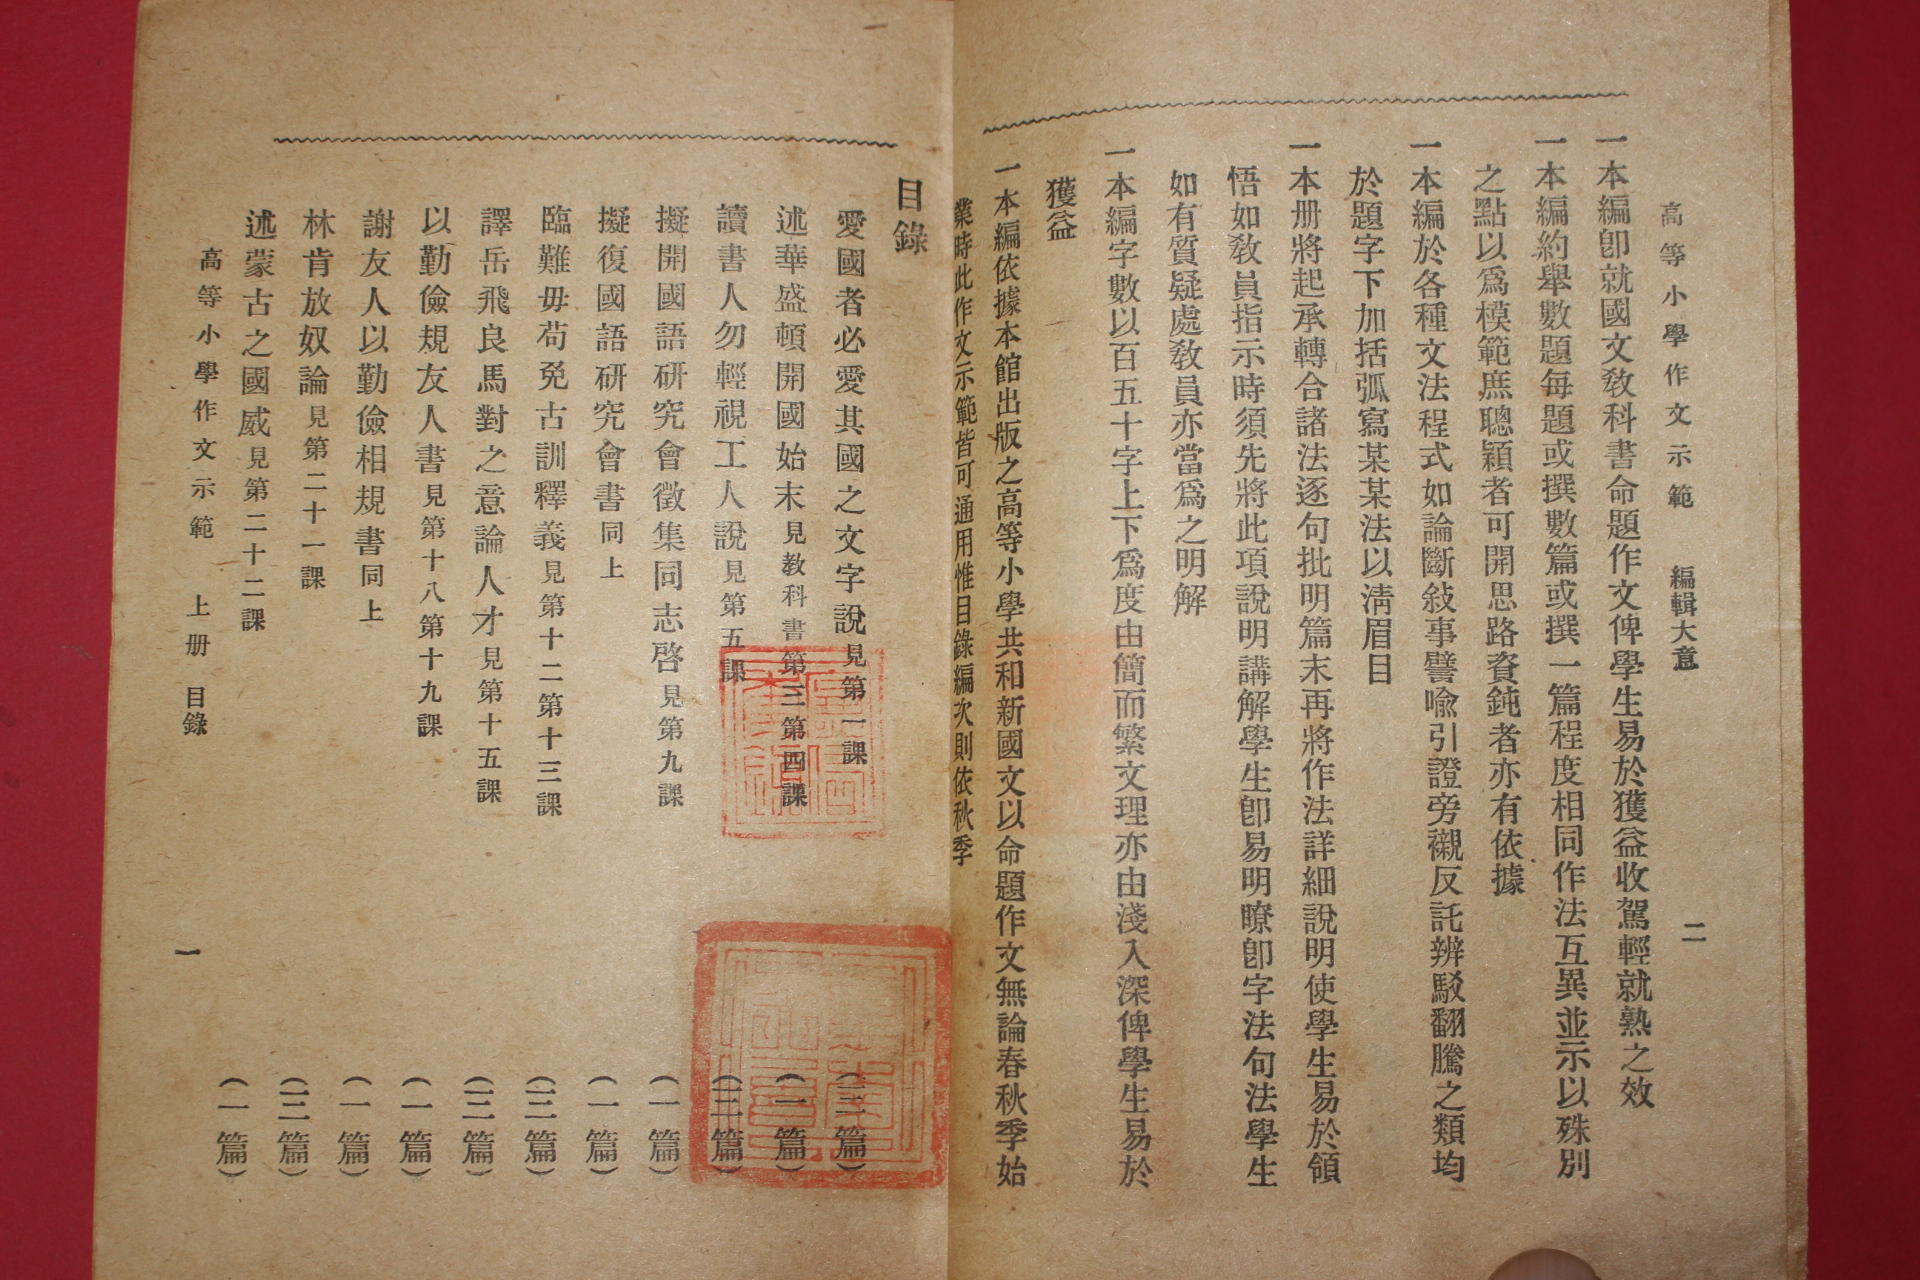 高等小學作文示範 編輯大意 二
一本編卽就國文敎科書命題作文俾學生易於獲益收駕輕就熟之效
一本編約舉數題每題或撰數篇或撰一篇程度相同作法互異並示以殊別
之點以爲模範庶聰穎者可開思路資鈍者亦有依據
一本編於各種文法程式如論斷敍事譬喩引證旁襯反託辨駁翻騰之類均
於題字下加括弧寫某某法以淸眉目
一本册將起承轉合諸法逐句批明篇末再將作法詳細說明使學生易於領
悟如敎員指示時須先將此項說明講解學生卽易明瞭卽字法句法學生
如有質疑處敎員亦當爲之明解
一本編字數以百五十字上下爲度由簡而繁文理亦由淺入深俾學生易於
獲益
一本編依據本館出版之高等小學共和新國文以命題作文無論春秋季始
業時此作文示範皆可通用惟目錄編次則依秋季
目錄
愛國者必愛其國之文字說見第一課 (三篇)
述華盛頓開國始末見敎科書第三第四課 (一篇)
讀書人勿輕視工人說見第五課 (三篇)
擬開國語研究會徵集同志啓見第九課 (一篇)
擬復國語研究會書同上 (一篇)
臨難毋苟免古訓釋義見第十二第十三課 (三篇)
譯岳飛良馬對之意論人才見第十五課 (三篇)
以勤儉規友人書見第十八第十九課 (一篇)
謝友人以勤儉相規書同上 (一篇)
林肯放奴論見第二十一課 (三篇)
述蒙古之國威見第二十二課 (一篇)
高等小學作文示範 上册 目錄 一